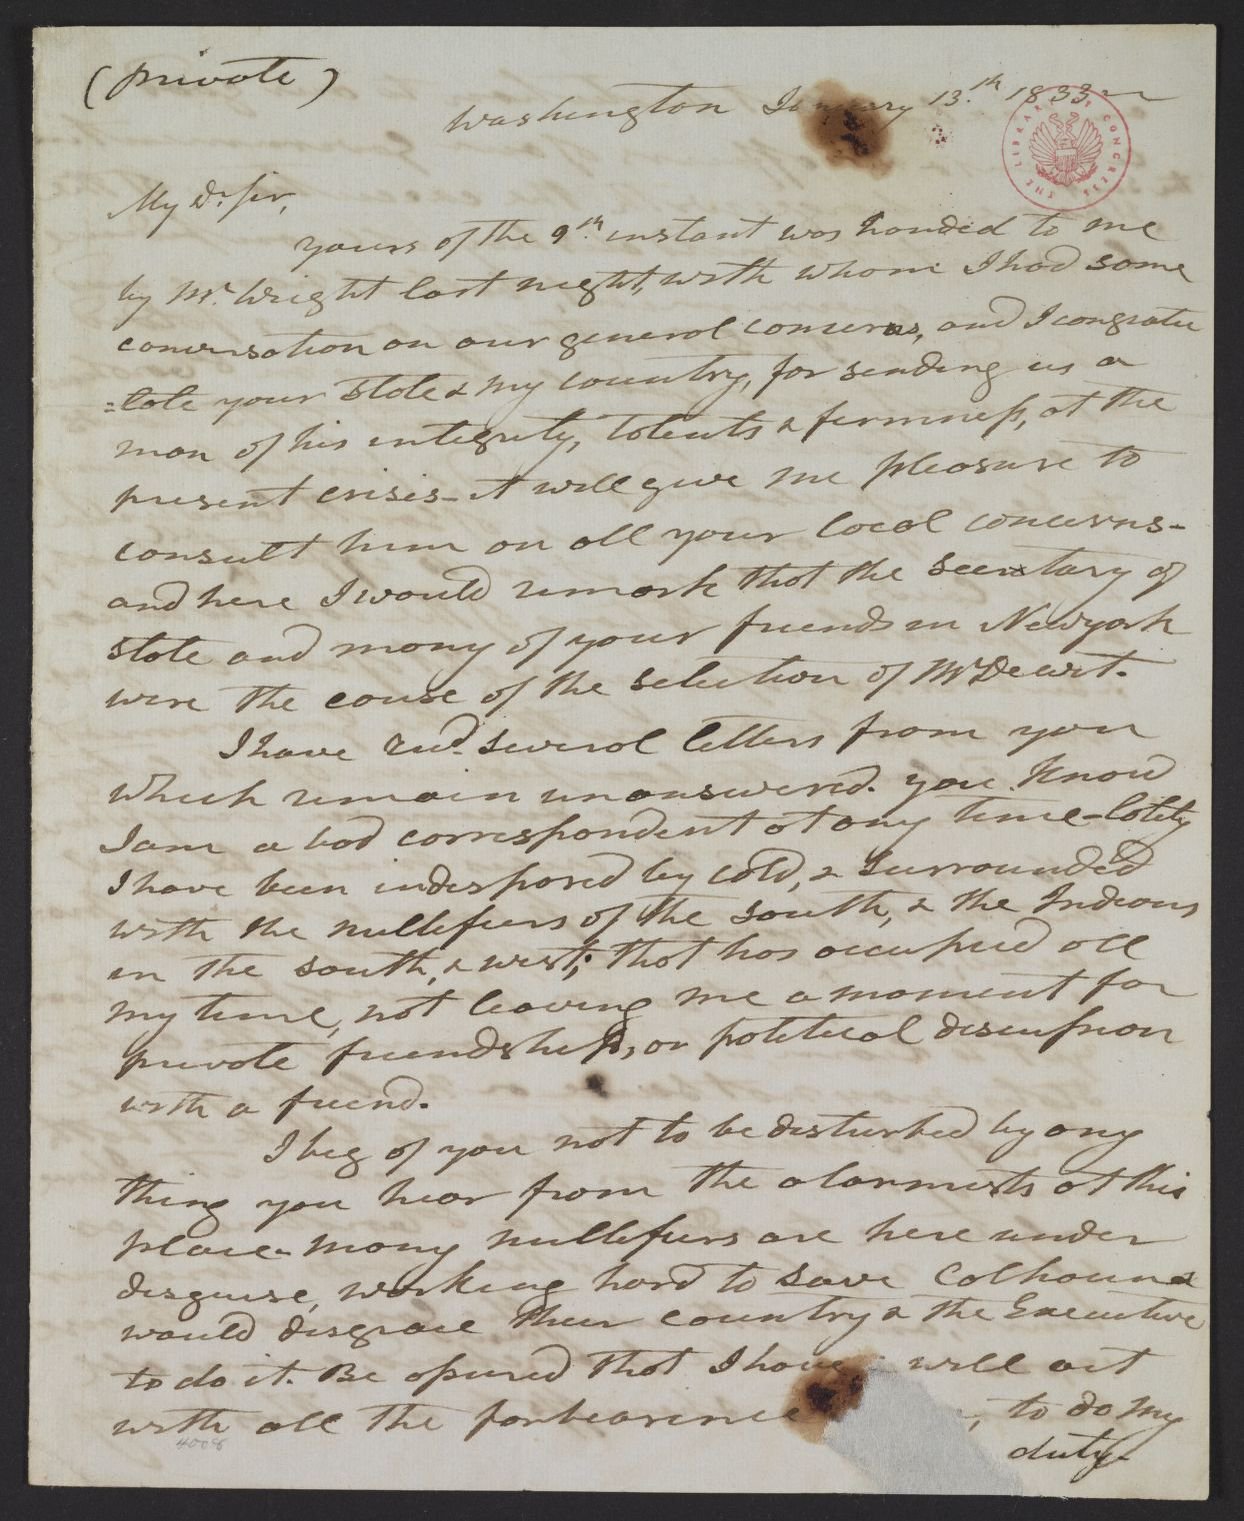 (private)
Washington January 13th 1833
THE LIBRARY OF CONGRESS
My Dr Sir,
yours of the 9th instant was handed to me
by Mr. Wright last night, with whom I had some
conversation on our general concerns, and I congratu
=late your state & my country, for sending us a
man of his integrity, talents & firmness, at the
present crisis - it will give me pleasure to
consult him on all your local concerns -
and here I would remark that the Secretary of
State and many of your friends in Newyork
were the cause of the selection of Mr Dewit.
I have recd. several letters from you
which remain unanswered. you know
I am a bad correspondent at any time - latily
I have been indisposed by cold, & surrounded
with the nullifiers of the south, & the Indians
in the south, & west; that has occupied all
my time, not leaving me a moment for
private friendship, or political discussion
with a friend.
I beg of you not to be disturbed by any
thing you hear from the alarmists at this
place - many nullifiers are here under
disguise, working hard to save Calhoun &
would disgrace their country & the Executive
to do it. Be asured that I have & will act
with all the forbearence , to do my
duty -
4008